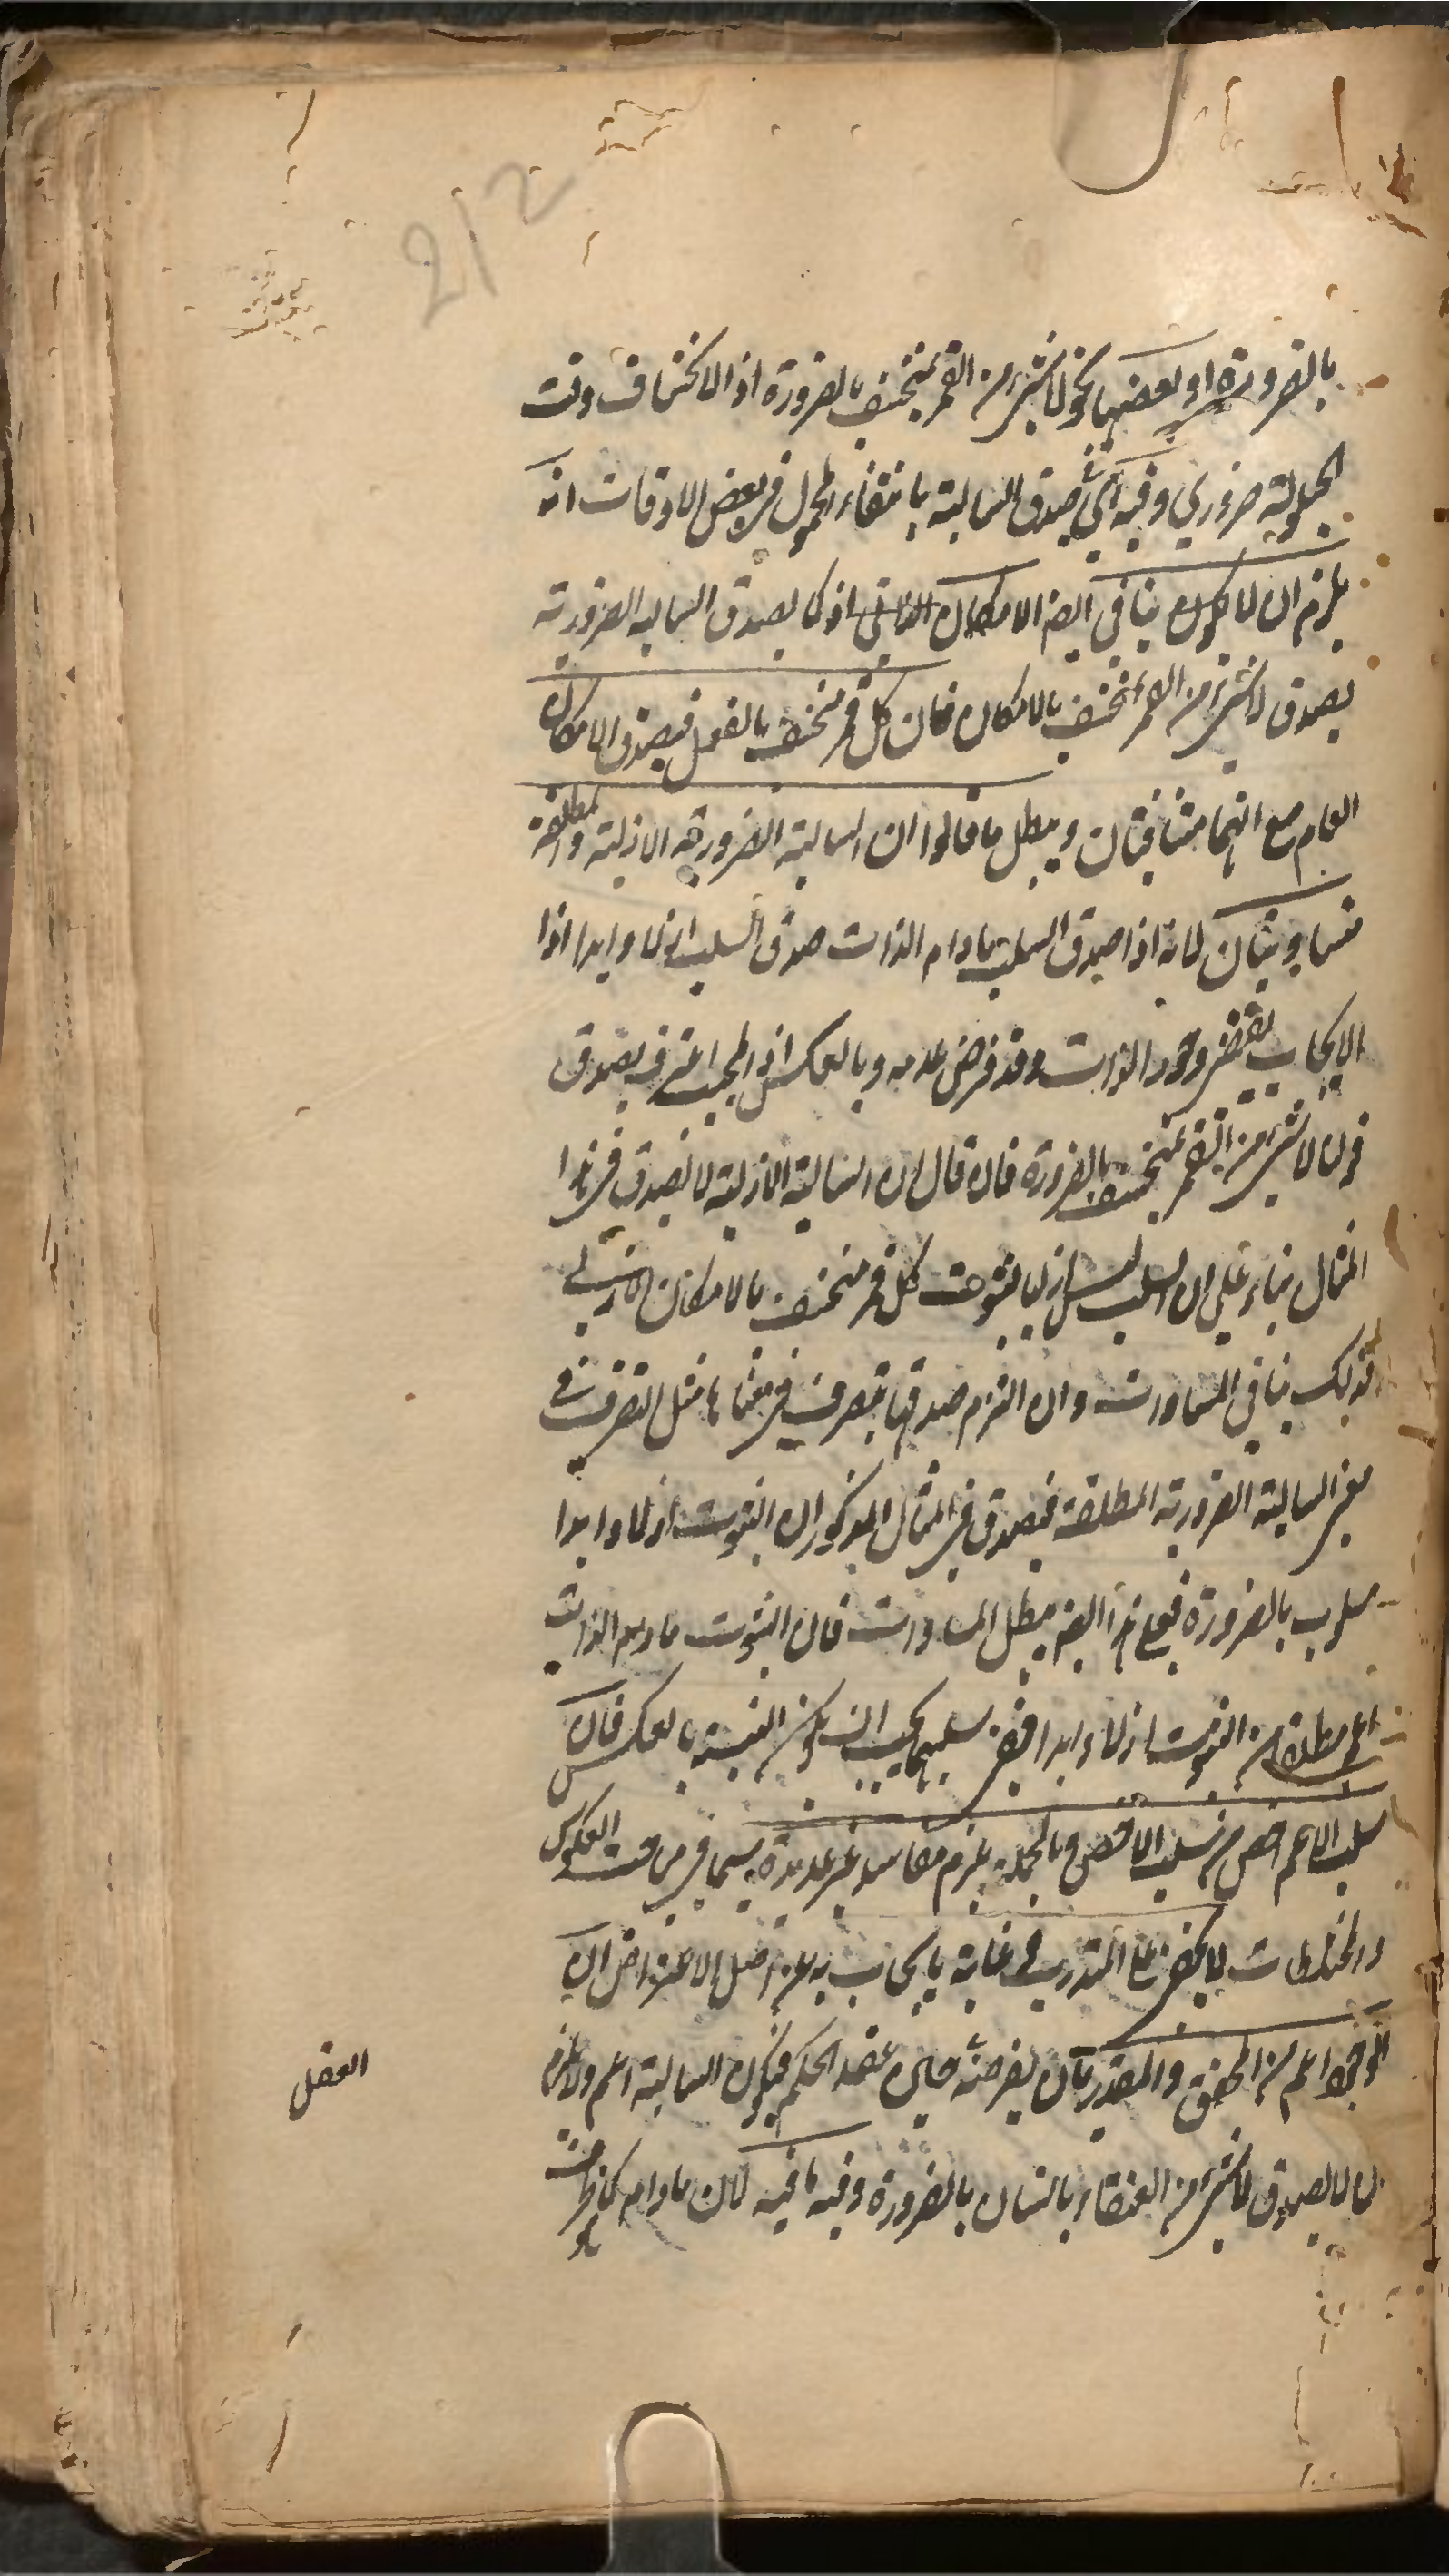 212
بالضرورة او بعضها نحو لا شيء من القمر بمنخسف بالضرورة اذ الانخساف وقت
الحيلولة ضروري وفيه اي في صدق السالبة بانتفاء المحمول في بعض الاوقات انه
يلزم ان لا يكون ينافي الضر الامكان الذاتي اذ كما يصدق السالبه الضرورية
يصدق لا شيء من القمر بمنخسف بالامكان فان كل قمر منخسف بالفعل فيصدق الامكان
العام مع انهما متنافيتان ويبطل ما قالوا ان السالبة الضرورية الازلية والمطلقة
متساويتان لانه اذا صدق السلب مادام الذات صدق السلب ازلا وابدا اذا
الايجاب يقتضي وجود الذات وقد فرض عدمه وبالعكس اذ المجيب اعترف بصدق
قولنا لا شيء من القمر بمنخسف بالضرورة فان قال ان السالبة الازلية لا تصدق في هذا
المثال بناء على ان السلب ليس ازليا لثبوت كل قمر منخسف بالامكان الازلي
فذلك ينافي المساوات وان التزم صدقها بتصرف في معناها مثل التصرف في
معنى السالبة الضرورية المطلقة فيصدق في المثال المذكور ان الثبوت ازلا وابدا
مسلوب بالضرورة فمع هذا ايضا يبطل المساوات فان الثبوت مادام الذات
اعم مطلقا من الثبوت ازلا وابدا ففي سلبهما يجب ان يكون النسبة بالعكس فان
سلب الاعم اخص من سلب الاخص وبالجملة يلزم مفاسد غير عديدة سيما في العكوس
والمختلطات لا يخفى على المتدرب في غاية ما يجاب به عن اصل الاعتراض ان
الوجود اعم من المحقق والمقدر بان يفرضه حين عقد الحكم فيكون السالبة اعم ولا يلزم
ان لا يصدق لا شيء من العنقاء بانسان بالضرورة وفيه ما فيه لان مادام
العقل